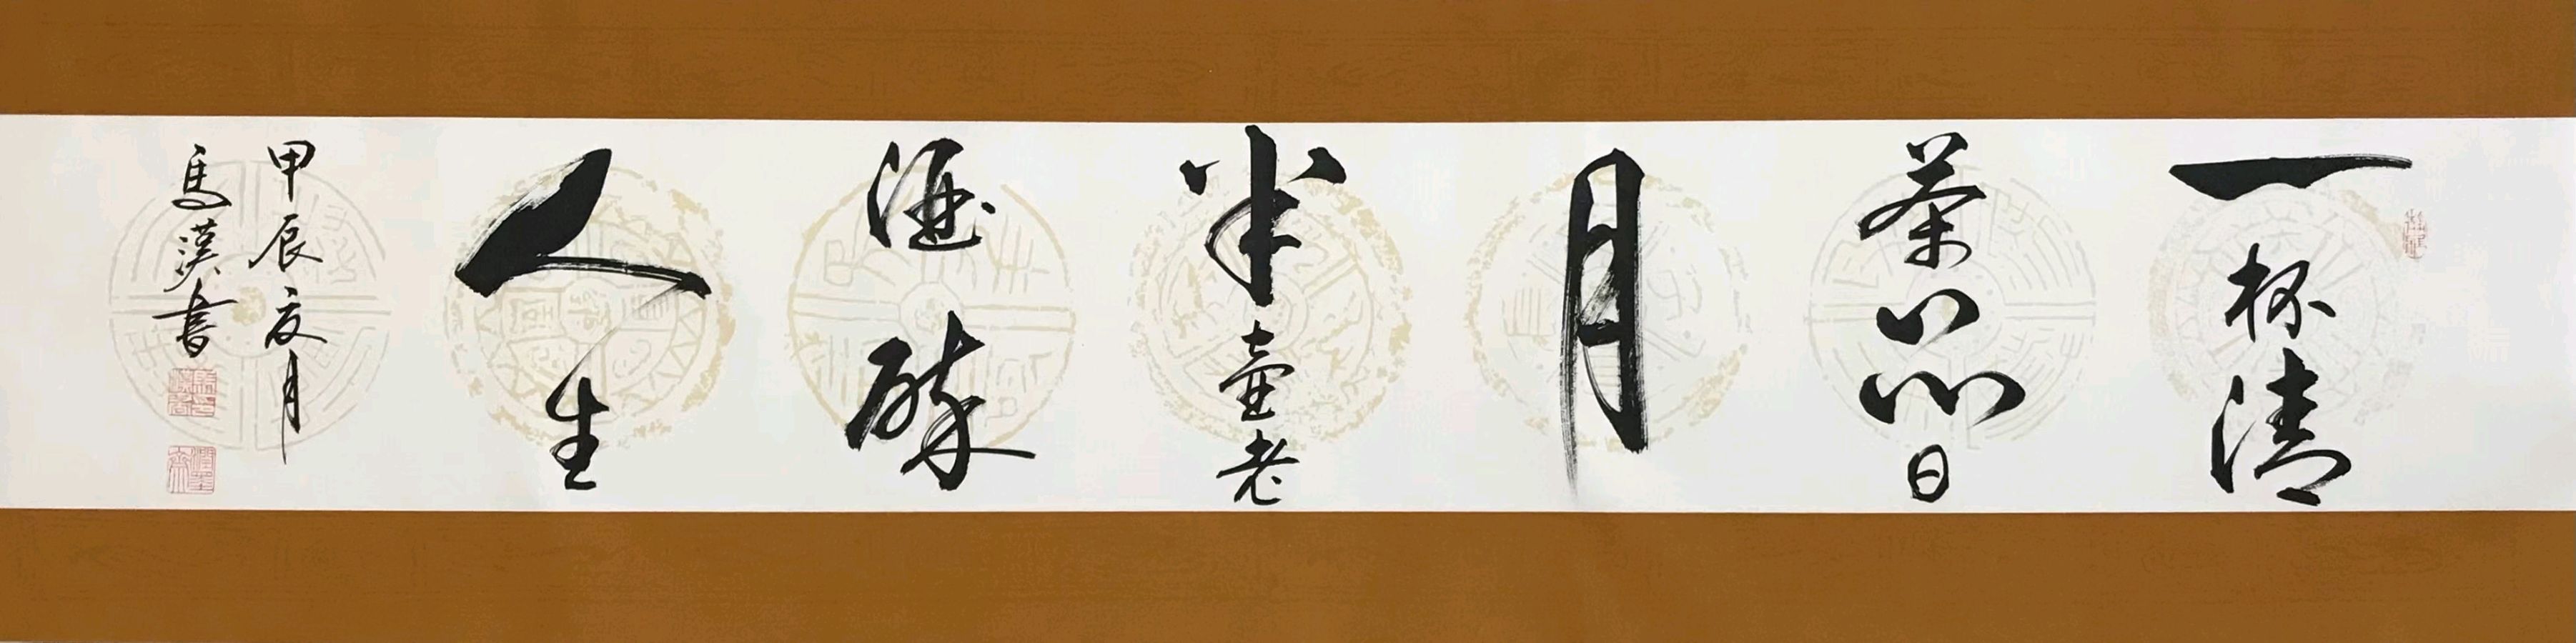 一杯清
茶品日
月
半壶老
酒醉
人生
甲辰夏月
馬漢書